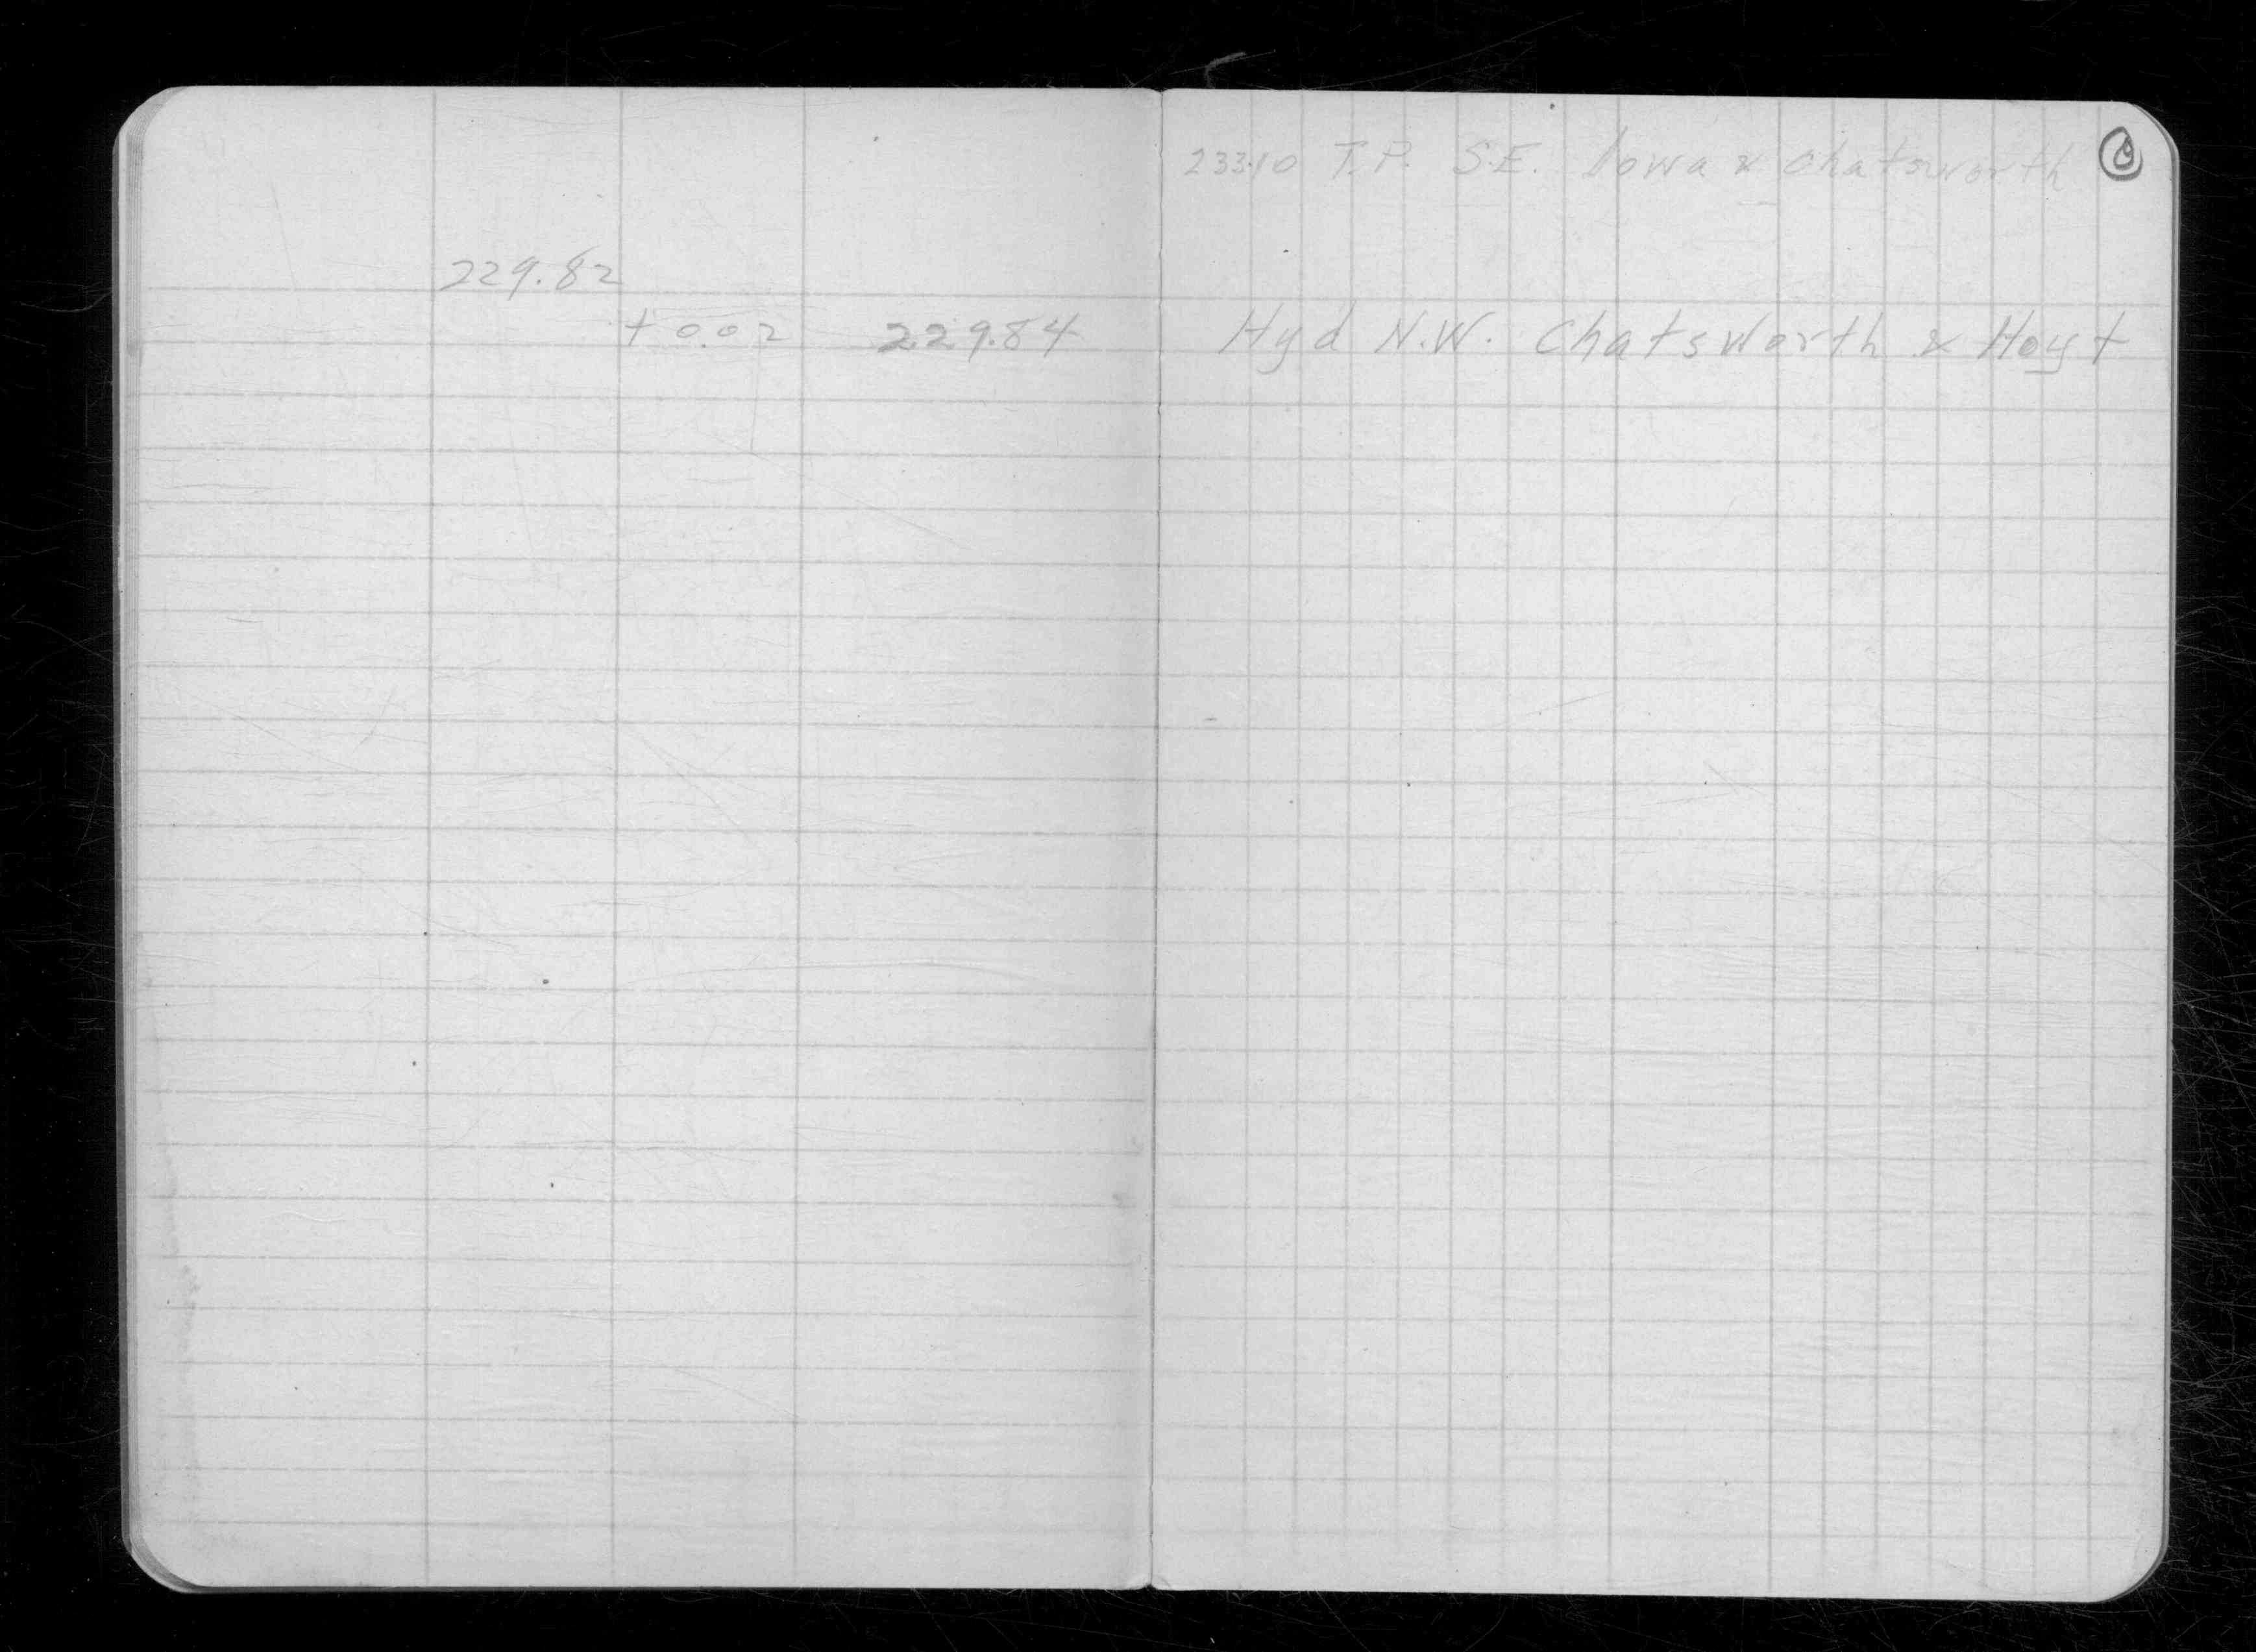 233.10 T.P. S.E. Iowa & Chatsworth
229.82
+0.02 229.84 Hyd N.W. Chatsworth & Hoyt